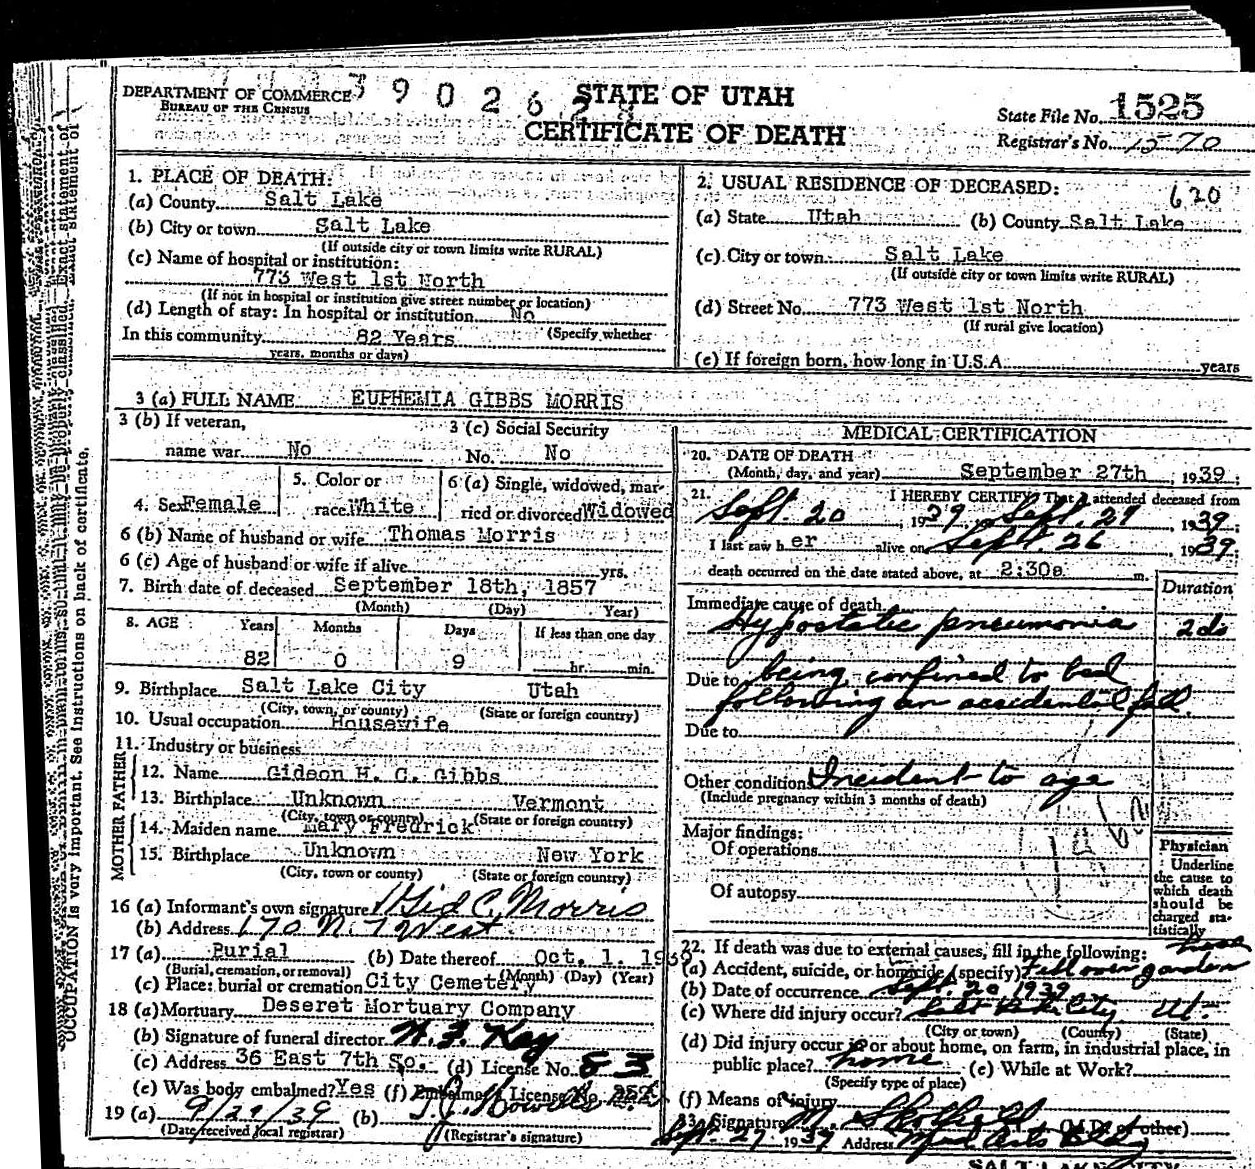 DEPARTMENT OF COMMERCE
BUREAU OF THE CENSUS
3 9 0 2 6 2 8
STATE OF UTAH
CERTIFICATE OF DEATH
State File No. 1525
Registrar's No. 1570
1. PLACE OF DEATH:
(a) County Salt Lake
(b) City or town Salt Lake
(If outside city or town limits write RURAL)
(c) Name of hospital or institution:
773 West 1st North
(If not in hospital or institution give street number or location)
(d) Length of stay: In hospital or institution No
(Specify whether
In this community 82 Years
years, months or days)
2. USUAL RESIDENCE OF DECEASED:
620
(a) State Utah (b) County Salt Lake
(c) City or town Salt Lake
(If outside city or town limits write RURAL)
(d) Street No. 773 West 1st North
(If rural give location)
(e) If foreign born, how long in U.S.A. years
3 (a) FULL NAME EUPHEMIA GIBBS MORRIS
3 (b) If veteran,
name war No
3 (c) Social Security
No. No
4. Sex Female
5. Color or
race White
6 (a) Single, widowed, mar-
ried or divorced Widowed
6 (b) Name of husband or wife Thomas Morris
6 (c) Age of husband or wife if alive yrs.
7. Birth date of deceased September 18th, 1857
(Month) (Day) Year)
8. AGE Years Months Days If less than one day
82 0 9 hr. min.
9. Birthplace Salt Lake City Utah
(City, town, or county) (State or foreign country)
10. Usual occupation Housewife
11. Industry or business
FATHER
12. Name Gideon H. C. Gibbs
13. Birthplace Unknown Vermont
(City, town or county) (State or foreign country)
MOTHER
14. Maiden name Mary Fredrick
15. Birthplace Unknown New York
(City, town or county) (State or foreign country)
16 (a) Informant's own signature Gid C. Morris
(b) Address 170 N. 7 West
17 (a) Burial (b) Date thereof Oct. 1. 1939
(Burial, cremation, or removal) (Month) (Day) (Year)
(c) Place: burial or cremation City Cemetery
18 (a) Mortuary Deseret Mortuary Company
(b) Signature of funeral director
(c) Address 36 East 7th So. (d) License No. 83
(e) Was body embalmed? Yes (f) Embalmer's License No.
19 (a) 9/29/39 (b)
(Date received local registrar) (Registrar's signature)
MEDICAL CERTIFICATION
20. DATE OF DEATH
(Month, day, and year) September 27th, 1939;
21. I HEREBY CERTIFY That I attended deceased from
Sept. 20, 1939, to Sept. 27, 1939;
I last saw her alive on Sept. 26, 1939;
death occurred on the date stated above, at 2:30a m.
Duration
Immediate cause of death
Hypostatic pneumonia 2 ds
Due to being confined to bed
following an accidental fall.
Due to
Other conditions Incident to age
(Include pregnancy within 3 months of death)
Major findings:
Of operations
Of autopsy
Physician
Underline
the cause to
which death
should be
charged sta-
tistically
22. If death was due to external causes, fill in the following:
(a) Accident, suicide, or homicide (specify) Fell over garden hose
(b) Date of occurrence Sept. 20 1939
(c) Where did injury occur? Salt Lake City Ut.
(City or town) (County) (State)
(d) Did injury occur in or about home, on farm, in industrial place, in
public place? home (e) While at Work?
(Specify type of place)
(f) Means of injury
23. Signature (M.D. or other)
Sept. 27. 1939 Address Med Arts Bldg
SALT LAKE CITY
OCCUPATION is very important. See instructions on back of certificate.